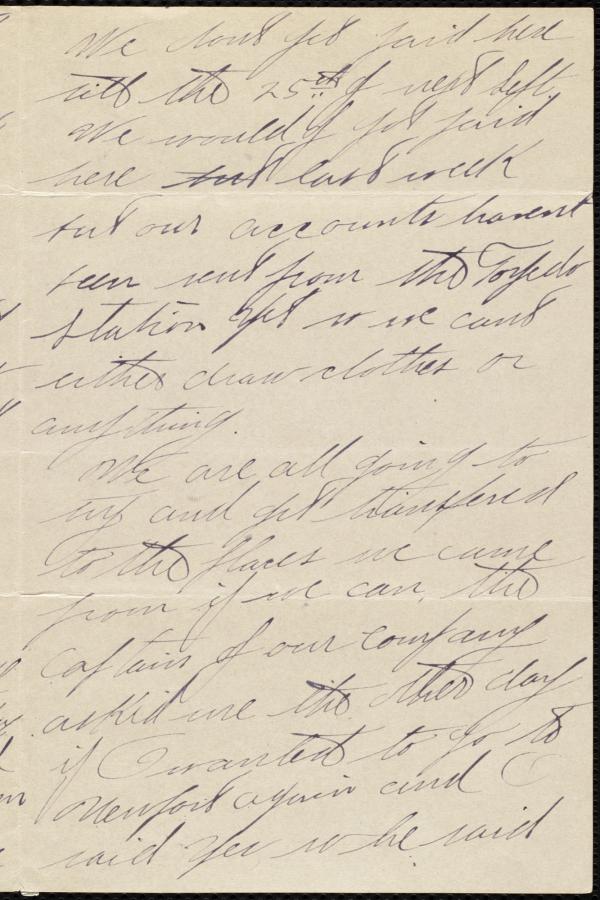 We dont get paid here
till the 25th of next Sept.
We would of got paid
here but last week
but our accounts havent
been sent from the Torpedo
Station yet so we cant
either draw clothes or
anything.
We are all going to
try and get transfered
to the places we came
from if we can, the
captain of our company
asked me the other day
if I wanted to go to
Newport again and I
said yes so he said